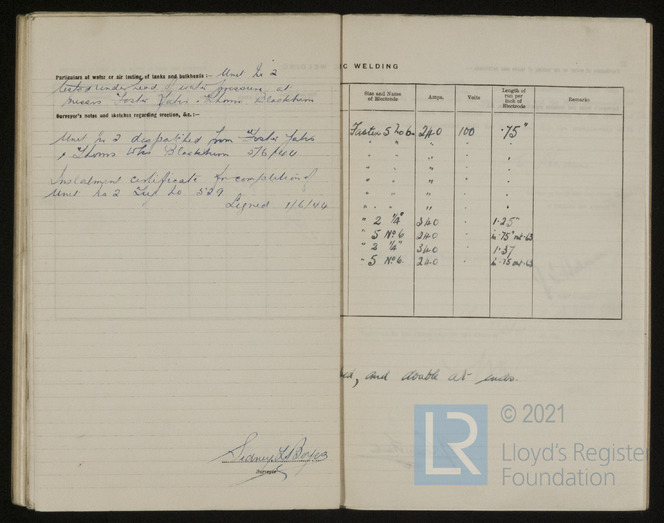 Particulars of water or air testing of tanks and bulkheads:- Unit No 2
tested under head of water pressure at
Messrs Foster Yates & Thoms Blackburn
Surveyor's notes and sketches regarding erection, &c.:—
Unit No 2 despatched from Foster Yates
& Thoms Wks Blackburn 5/6/44
Instalment certificate for completion of
Unit No 2 No 529
Signed 1/6/44
Sidney Boyes
Surveyor
IC WELDING
Size and Name of Electrode Amps. Volts Length of run per inch of Electrode Remarks
5 No 6 240 100 .75"
" " " " .
" " " " .
" " " " .
" " " " .
" " " " .
" 2 ¼" 340 " 1.25"
" 5 No 6 240 " in .75" out .63
" 2 ¼" 340 " 1.37
" 5 No 6 240 " in .75 out .63
and double at ends.
LR
© 2021
Lloyd's Register
Foundation